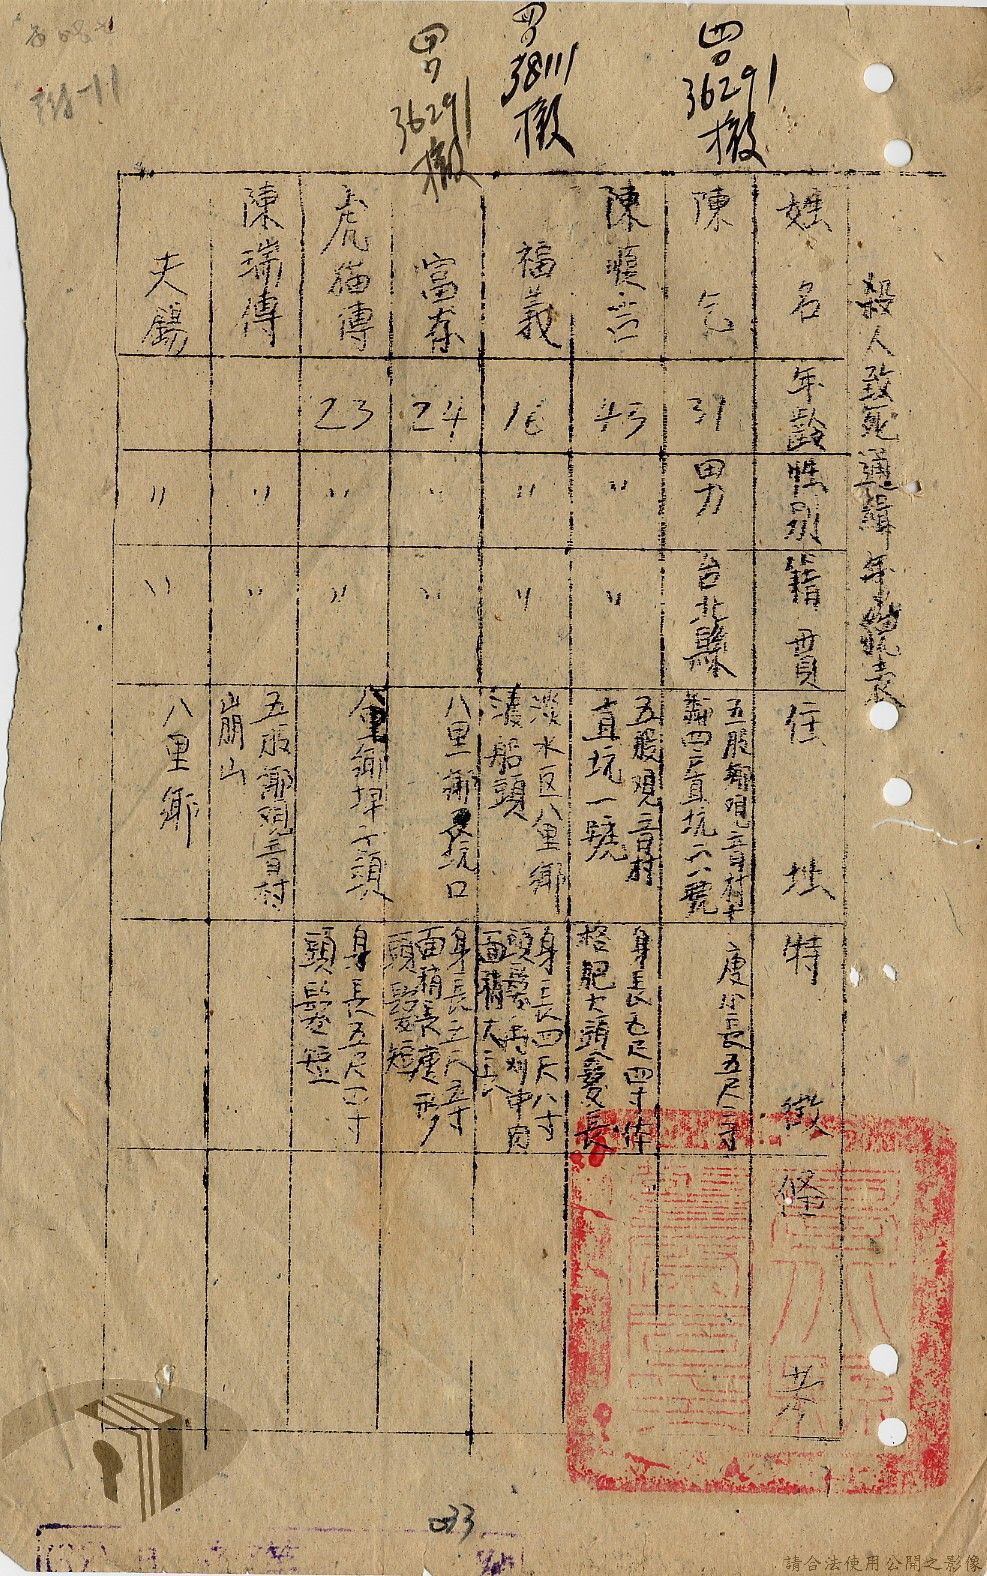 36291
撤
38111
撤
36291
撤
殺人致死通緝年貌表
姓名
年齡
性別
籍貫
住址
特徵
備考
陳乞
31
男
台北縣
五股鄉观音村十
鄰四戶直坑六六號
瘦小長五尺二寸
陳
45
〃
〃
五股观音村
直坑一號
身長五尺四寸体
格肥大頭髮長
福義
16
〃
〃
淡水区八里鄉
渡船頭
身長四尺八寸
富春
24
〃
〃
八里鄉坑口
身長五尺五寸
面稍長瘦形
頭髮短
虎猫傳
23
〃
〃
八里鄉埤子頭
身長五尺二寸
頭髮短
陳瑞傳
〃
〃
五股鄉观音村
崩山
夫錫
〃
〃
八里鄉
33
請合法使用公開之影像